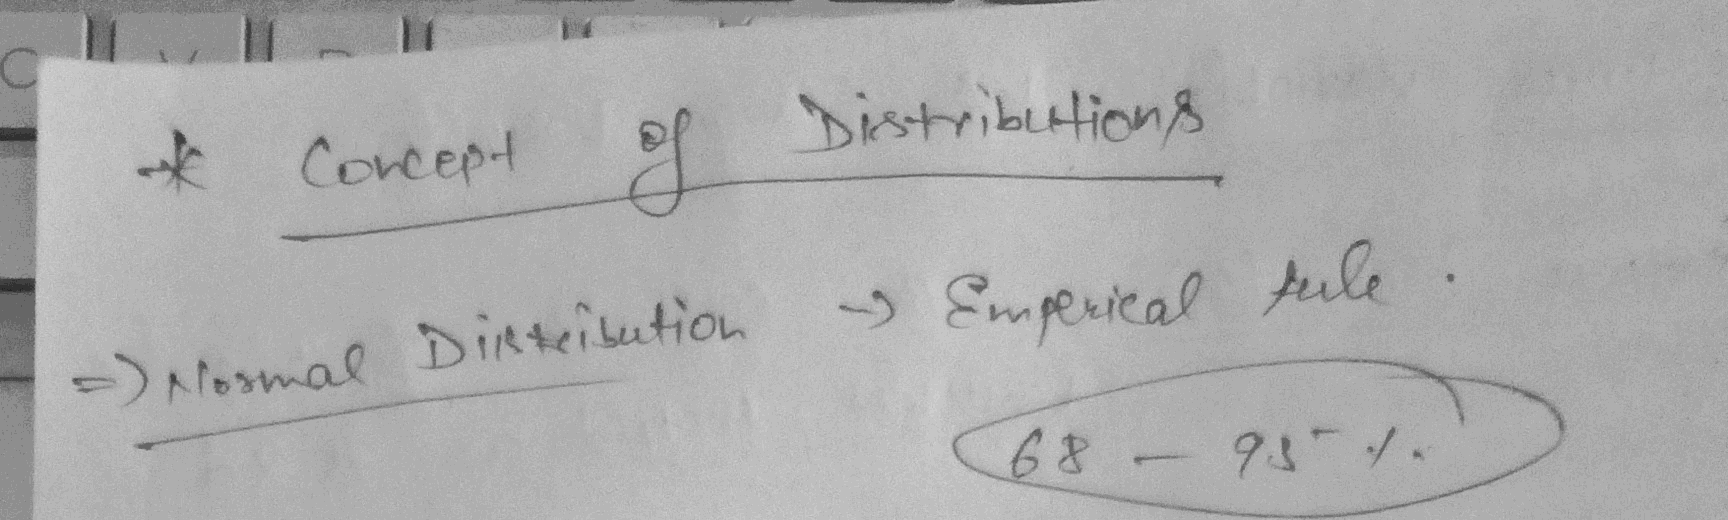 * Concept of Distributions
=> Normal Distribution -> Emperical rule.
68 - 95 %.